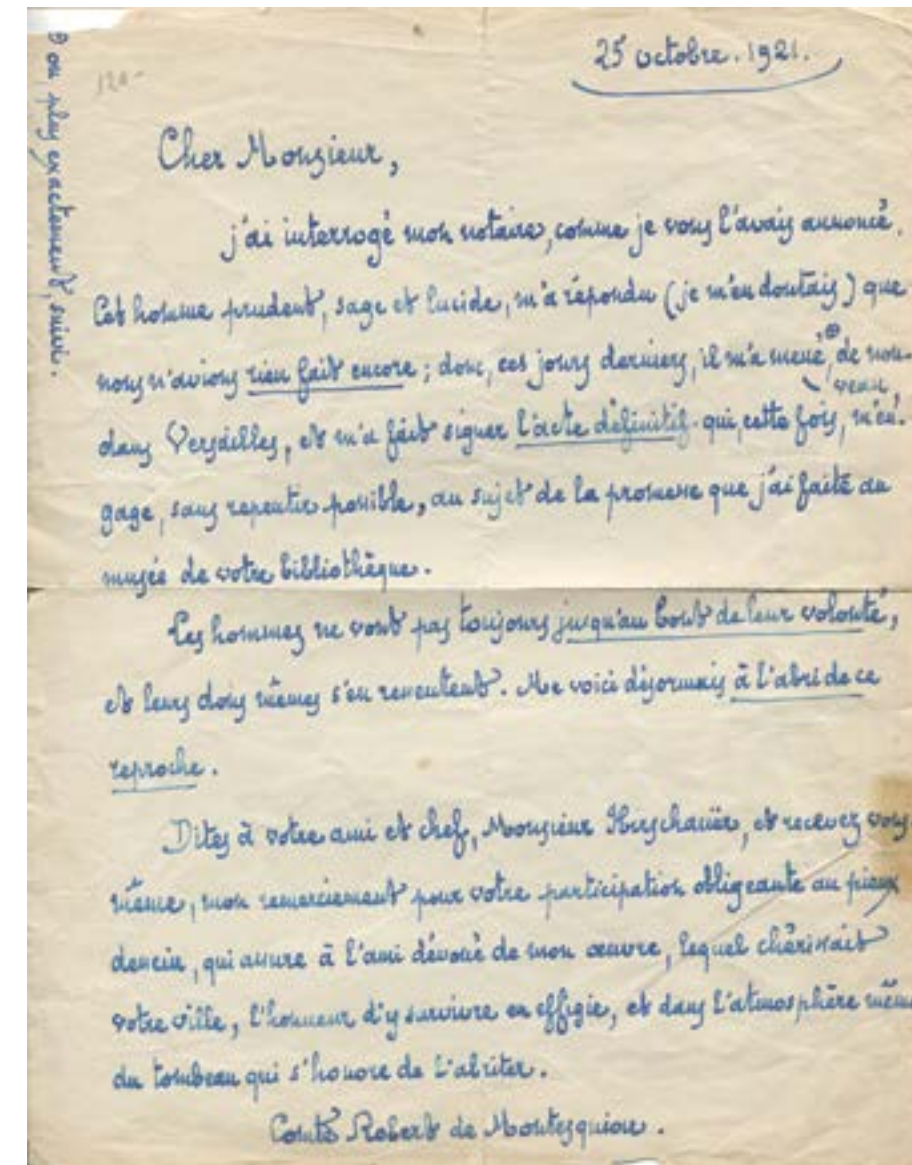 ⊕ ou, plus exactement, suivi.
120-
25 octobre. 1921.
Cher Monsieur,
j'ai interrogé mon notaire, comme je vous l'avais annoncé.
Cet homme prudent, sage et lucide, m'a répondu (je m'en doutais) que
nous n'avions rien fait encore ; donc, ces jours derniers, il m'a mené ⊕, de nou-
veau,
dans Versailles, et m'a fait signer l'acte définitif qui, cette fois, m'en-
gage, sans repentir possible, au sujet de la promesse que j'ai faite au
musée de votre bibliothèque.
Les hommes ne vont pas toujours jusqu'au bout de leur volonté,
et leurs dons mêmes s'en ressentent. Me voici désormais à l'abri de ce
reproche.
Dites à votre ami et chef, Monsieur Hirschauër, et recevez vous
même, mon remerciement pour votre participation obligeante au pieux
dessein, qui assure à l'ami dévoué de mon œuvre, lequel chérissait
votre ville, l'honneur d'y survivre en effigie, et dans l'atmosphère même
du tombeau qui s'honore de l'abriter.
Comte Robert de Montesquiou.